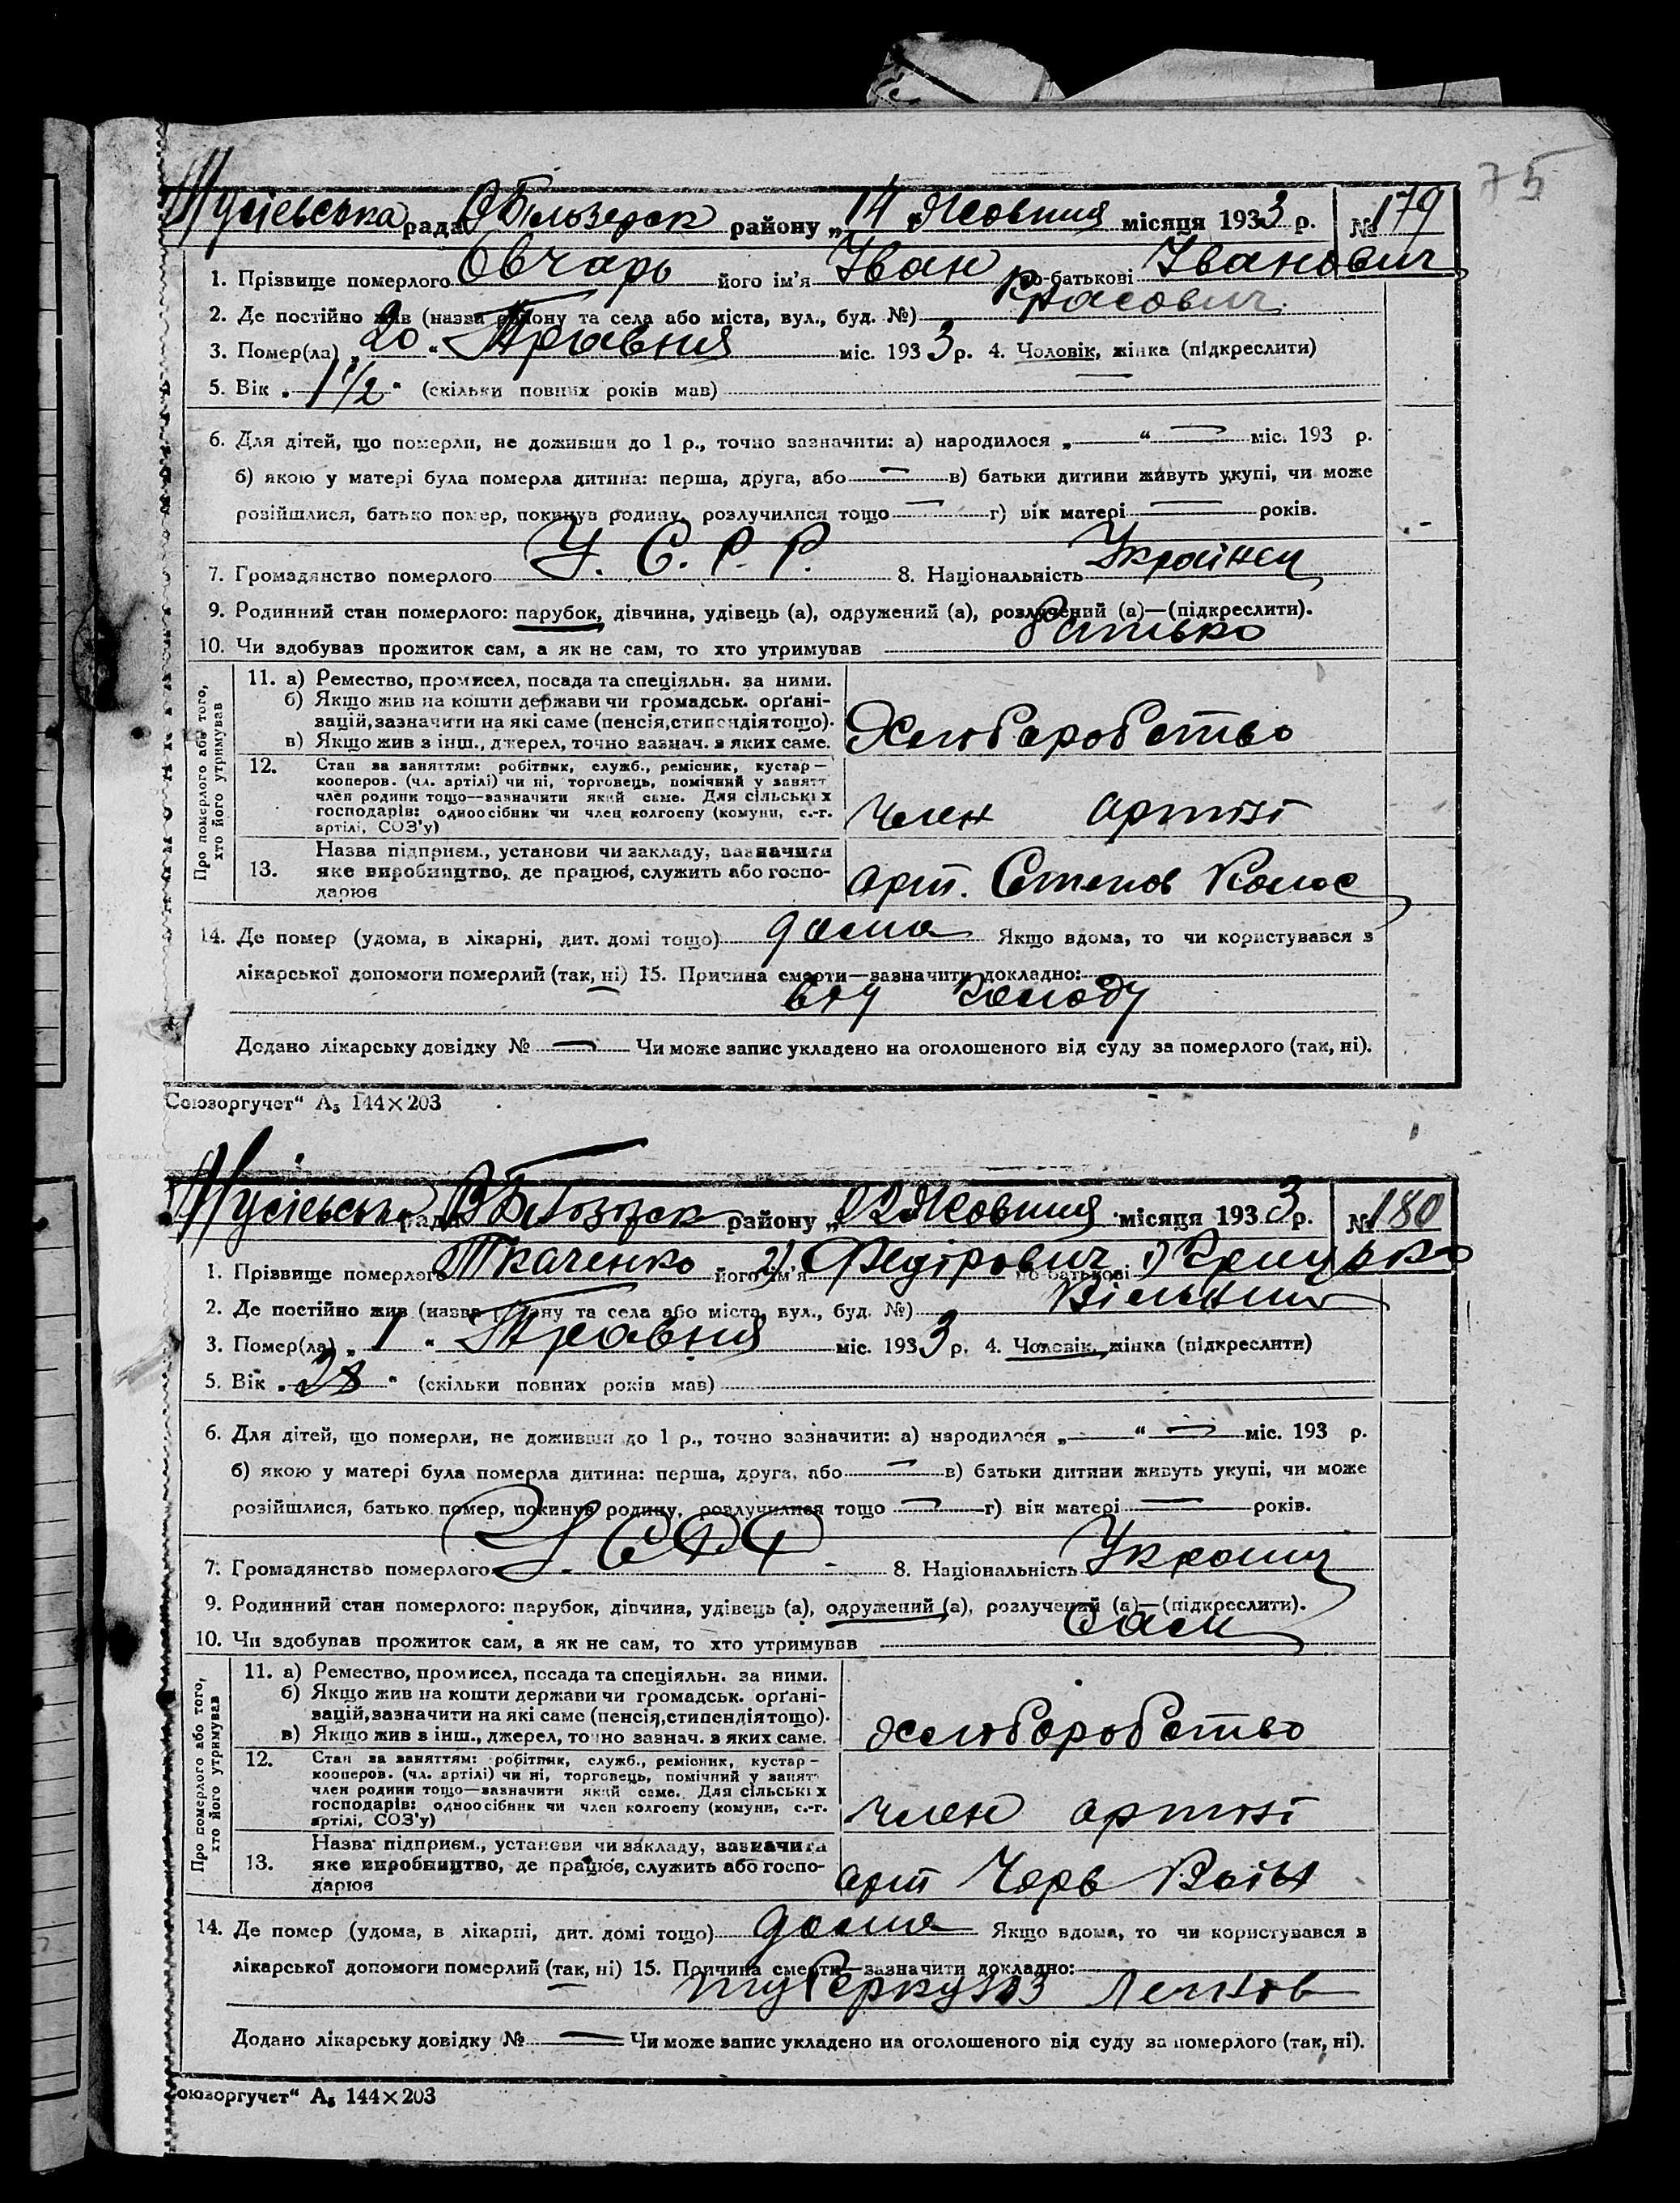 75
Мусіевська рада В Білозерск району „14 Жовтня місяця 1933 р. № 179
1. Прізвище померлого Овчарь його ім'я Іван по-батькові Іванович
2. Де постійно жив (назва району та села або міста, вул., буд. №)
3. Помер(ла) „ 20 “ Травня міс. 1933 р. 4. Чоловік, жінка (підкреслити)
5. Вік „ 1 1/2 “ (скільки повних років мав)
6. Для дітей, що померли, не доживши до 1 р., точно зазначити: а) народилося „ — “ — міс. 193 р.
б) якою у матері була померла дитина: перша, друга, або — в) батьки дитини живуть укупі, чи може
розійшлися, батько помер, покинув родину, розлучилися тощо — г) вік матері — років.
7. Громадянство померлого У. С. Р. Р. 8. Національність Українец
9. Родинний стан померлого: парубок, дівчина, удівець (а), одружений (а), розлучений (а)—(підкреслити).
10. Чи здобував прожиток сам, а як не сам, то хто утримував батько
Про померлого або того, хто його утримував
11. а) Ремество, промисел, посада та спеціяльн. за ними.
б) Якщо жив на кошти держави чи громадськ. орґані-
зацій, зазначити на які саме (пенсія, стипендія тощо).
в) Якщо жив з інш., джерел, точно зазнач. з яких саме.
Хлюборобство
12. Стан за заняттям: робітник, служб., ремісник, кустар—
кооперов. (чл. артілі) чи ні, торговець, помічний у занятт
член родини тощо—зазначити який саме. Для сільських
господарів: одноосібник чи член колгоспу (комуни, с.-г.
артілі, СОЗ'у)
член артілі
13. Назва підприєм., установи чи закладу, зазначити
яке виробництво, де працює, служить або госпо-
дарює
арт. Степов Колос
14. Де помер (удома, в лікарні, дит. домі тощо) дома Якщо вдома, то чи користувався з
лікарської допомоги померлий (так, ні) 15. Причина смерти—зазначити докладно:
від голоду
Додано лікарську довідку № — Чи може запис укладено на оголошеного від суду за померлого (так, ні).
Союзоргучет“ А5 144×203
Мусіевська рада В Білозерск району „02 Жовтня місяця 1933 р. № 180
1. Прізвище померлого Ткаченко його ім'я 2) Федірович по-батькові 1) Грицько
2. Де постійно жив (назва району та села або міста, вул., буд. №)
3. Помер(ла) „ 1 “ Травня міс. 1933 р. 4. Чоловік, жінка (підкреслити)
5. Вік „ 28 “ (скільки повних років мав)
6. Для дітей, що померли, не доживши до 1 р., точно зазначити: а) народилося „ — “ — міс. 193 р.
б) якою у матері була померла дитина: перша, друга, або — в) батьки дитини живуть укупі, чи може
розійшлися, батько помер, покинув родину, розлучилися тощо — г) вік матері — років.
7. Громадянство померлого У. С Р Р 8. Національність Україниц
9. Родинний стан померлого: парубок, дівчина, удівець (а), одружений (а), розлучений (а)—(підкреслити).
10. Чи здобував прожиток сам, а як не сам, то хто утримував Сам
Про померлого або того, хто його утримував
11. а) Ремество, промисел, посада та спеціяльн. за ними.
б) Якщо жив на кошти держави чи громадськ. орґані-
зацій, зазначити на які саме (пенсія, стипендія тощо).
в) Якщо жив в інш., джерел, точно зазнач. з яких саме.
Хлюборобство
12. Стан за заняттям: робітник, служб., ремісник, кустар—
кооперов. (чл. артілі) чи ні, торговець, помічний у занятт
член родини тощо—зазначити який саме. Для сільських
господарів: одноосібник чи член колгоспу (комуни, с.-г.
артілі, СОЗ'у)
член артілі
13. Назва підприєм., установи чи закладу, зазначити
яке виробництво, де працює, служить або госпо-
дарює
арт Черв
14. Де помер (удома, в лікарні, дит. домі тощо) дома Якщо вдома, то чи користувався в
лікарської допомоги померлий (так, ні) 15. Причина смерти—зазначити докладно:
туберкульоз легков
Додано лікарську довідку № — Чи може запис укладено на оголошеного від суду за померлого (так, ні).
оюзоргучет“ А5 144×203